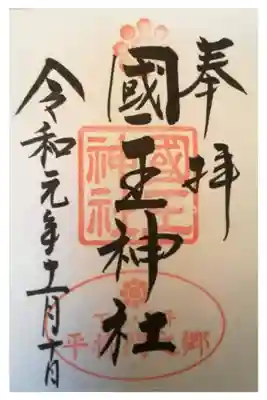 奉拝
國王神社
令和元年十一月十日
國王神社
平将門之郷